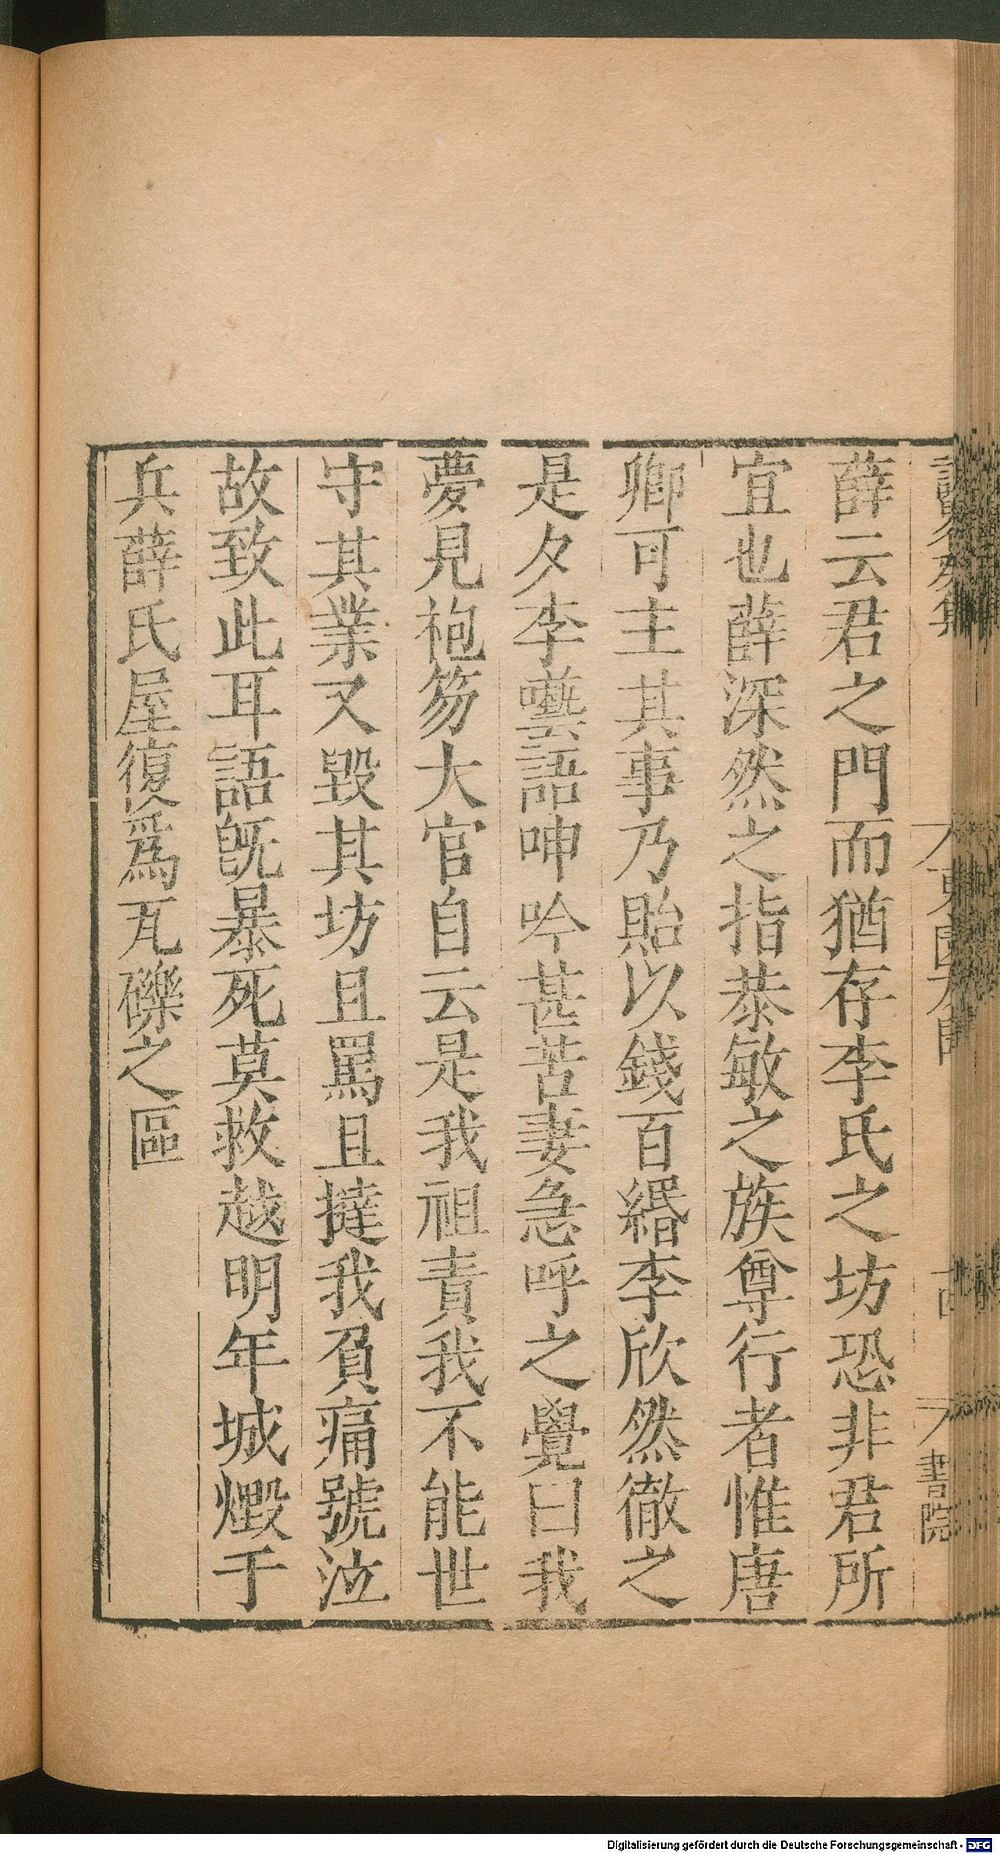 薛云君之門而猶存李氏之坊恐非君所
宜也薛深然之指恭敏之族尊行者惟唐
卿可主其事乃貽以錢百緡李欣然徹之
是夕李囈語呻吟甚苦妻急呼之覺曰我
夢見袍笏大官自云是我祖責我不能世
守其業又毀其坊且罵且撻我負痛號泣
故致此耳語旣暴死莫救越明年城燬于
兵薛氏屋復爲瓦礫之區
書院
Digitalisierung gefördert durch die Deutsche Forschungsgemeinschaft - DFG